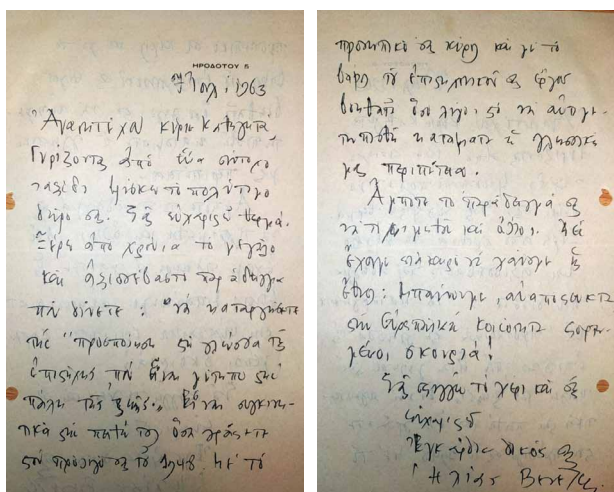 ΗΡΟΔΟΤΟΥ 5
7 Ιουλ. 1963
Ἀγαπητέ μου κύριε καθηγητά
Γυρίζοντας ἀπό ἕνα σύντομο
ταξίδι βρίσκω τό πολύτιμο
δῶρο σας. Σᾶς εὐχαριστῶ θερμά.
Ξέρω ἀπό χρόνια τό μεγάλο
καί ἀξιοσέβαστο παράδειγμα
πού δίνετε: νά καταργήσετε
τήν "προσποίηση στή γλώσσα τῆς
ἐπιστήμης πού εἶναι
πάλη τῆς ζωῆς". Εἶναι συγκινη-
τικά στή τους ὅσα γράφετε
στόν πρόλογό σας τοῦ 1948. Μέ τό
προσωπικό σας κύρος καί μέ τό
βάρος τοῦ ἐπιστημονικοῦ σας ἔργου
βοηθᾶτε ὅσο λίγοι, στό νά
καταματα ἡ γλωσσική
μας περιπέτεια.
Ἄμποτε τό παράδειγμά σας
νά τό μιμηθοῦν καί ἄλλοι. Δέν
ἔχουμε πιά καιρό νά χάνουμε
ἔτσι: Μπαίνουμε,
στήν Εὐρωπαϊκή Κοινότητα
σκουριά!
Σᾶς σφίγγω τό χέρι καί σᾶς
εὐχαριστῶ
Ἐγκάρδια δικός σας
Ἠλίας Βενέζης